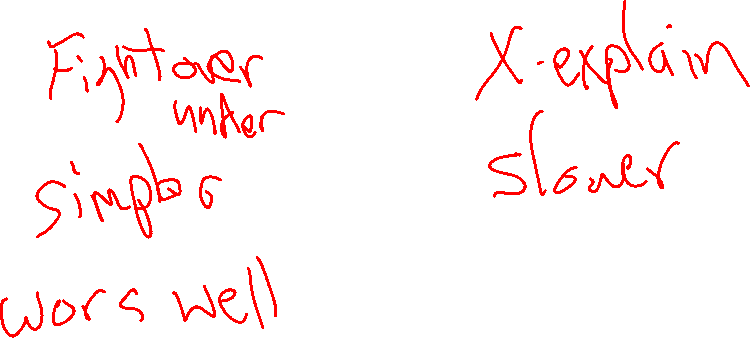 Fight over
under
simpler
wors well
X-explain
slower